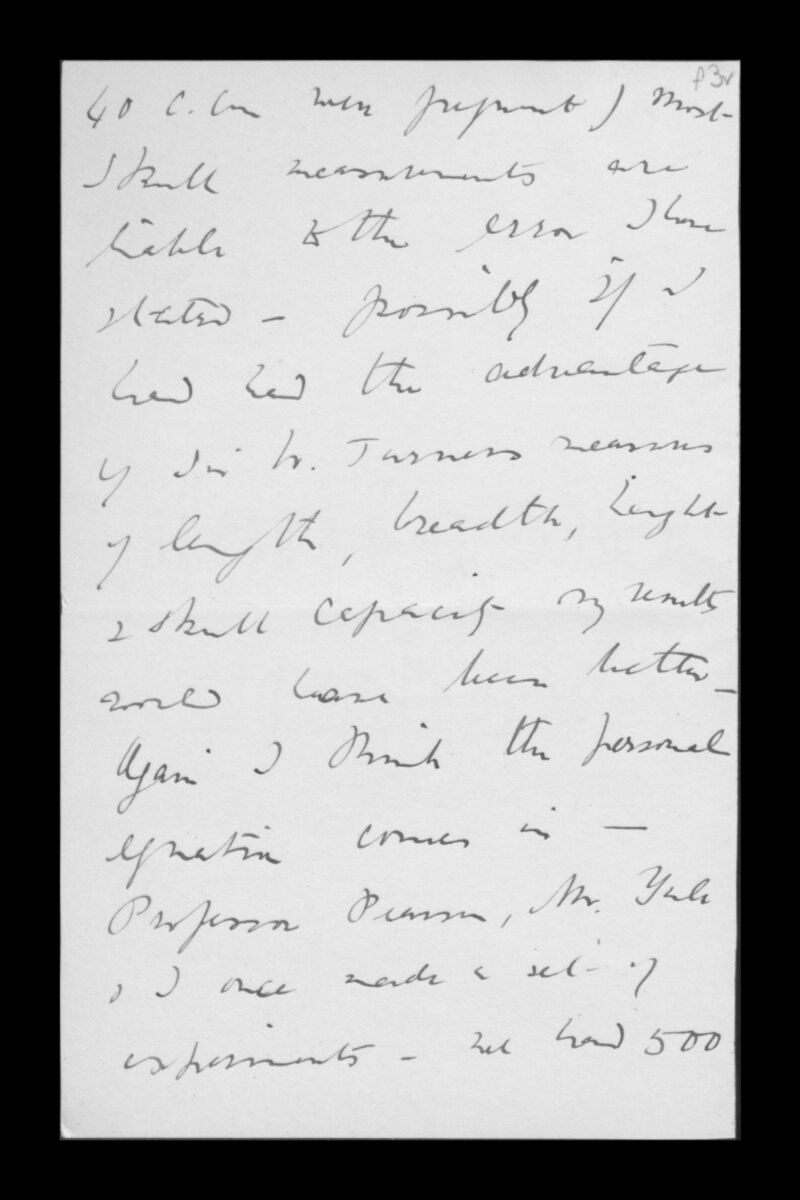 p3v
40 c.cm were frequent) most
skull measurements are
liable to the error I have
stated — possibly if I
had had the advantage
of Sir W. Turners measures
of length, breadth, height
& skull capacity my results
would have been better —
Again I think the personal
equation comes in —
Professor Pearson, Mr. Yule
& I once made a set of
experiments — we had 500